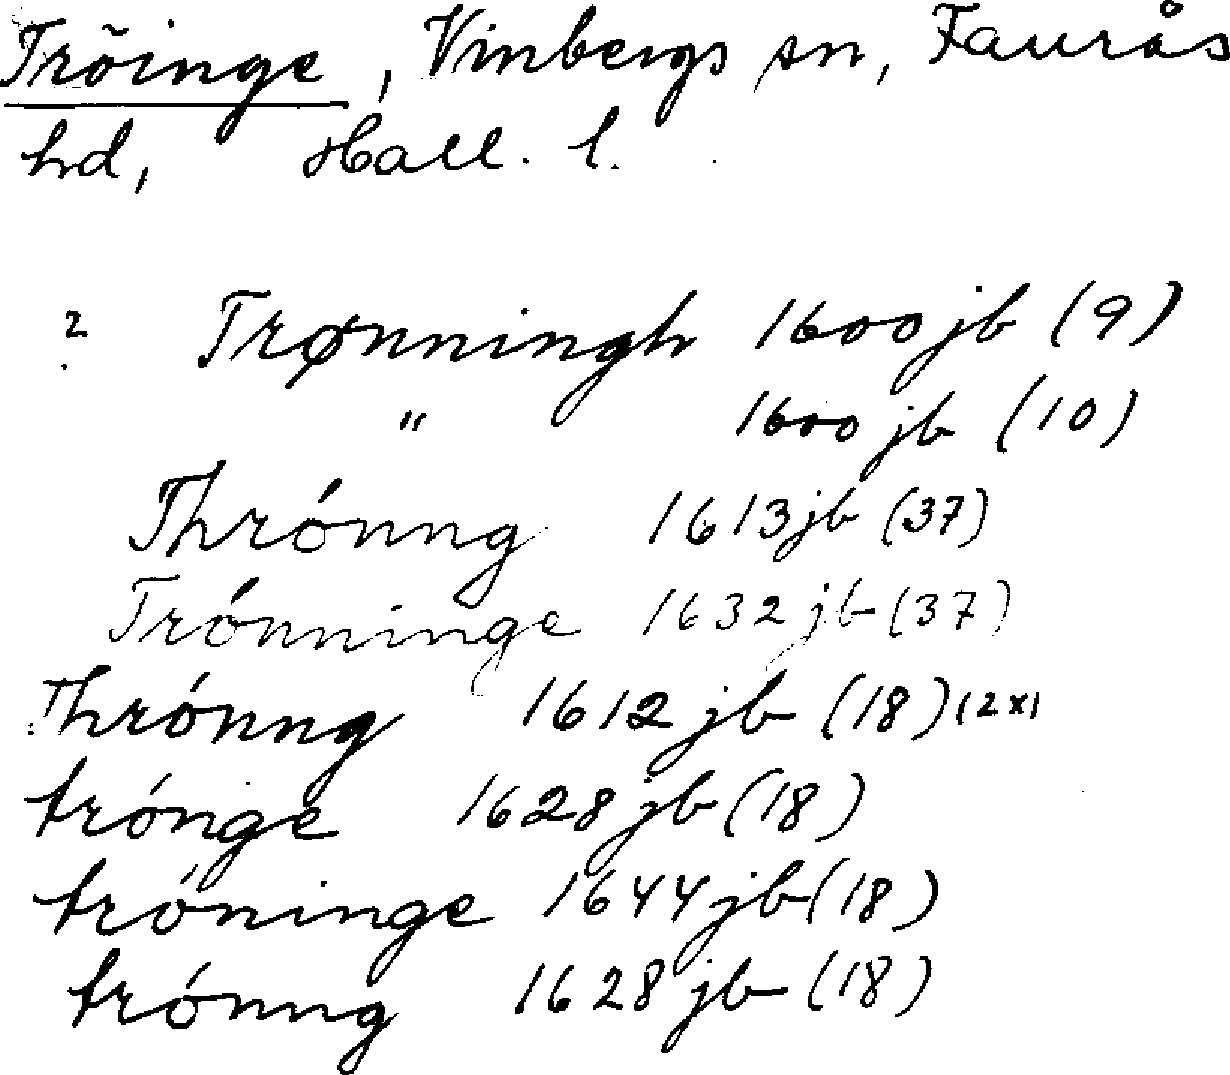 Tröinge, Vinbergs sn, Faurås
hd, Hall. l.
? Trønningh 1600 jb (9)
" 1600 jb (10)
Thrónng 1613 jb (37)
Trónninge 1632 jb (37)
Thrónng 1612 jb (18) (2x)
trónge 1628 jb (18)
tróninge 1644 jb (18)
trónng 1628 jb (18)